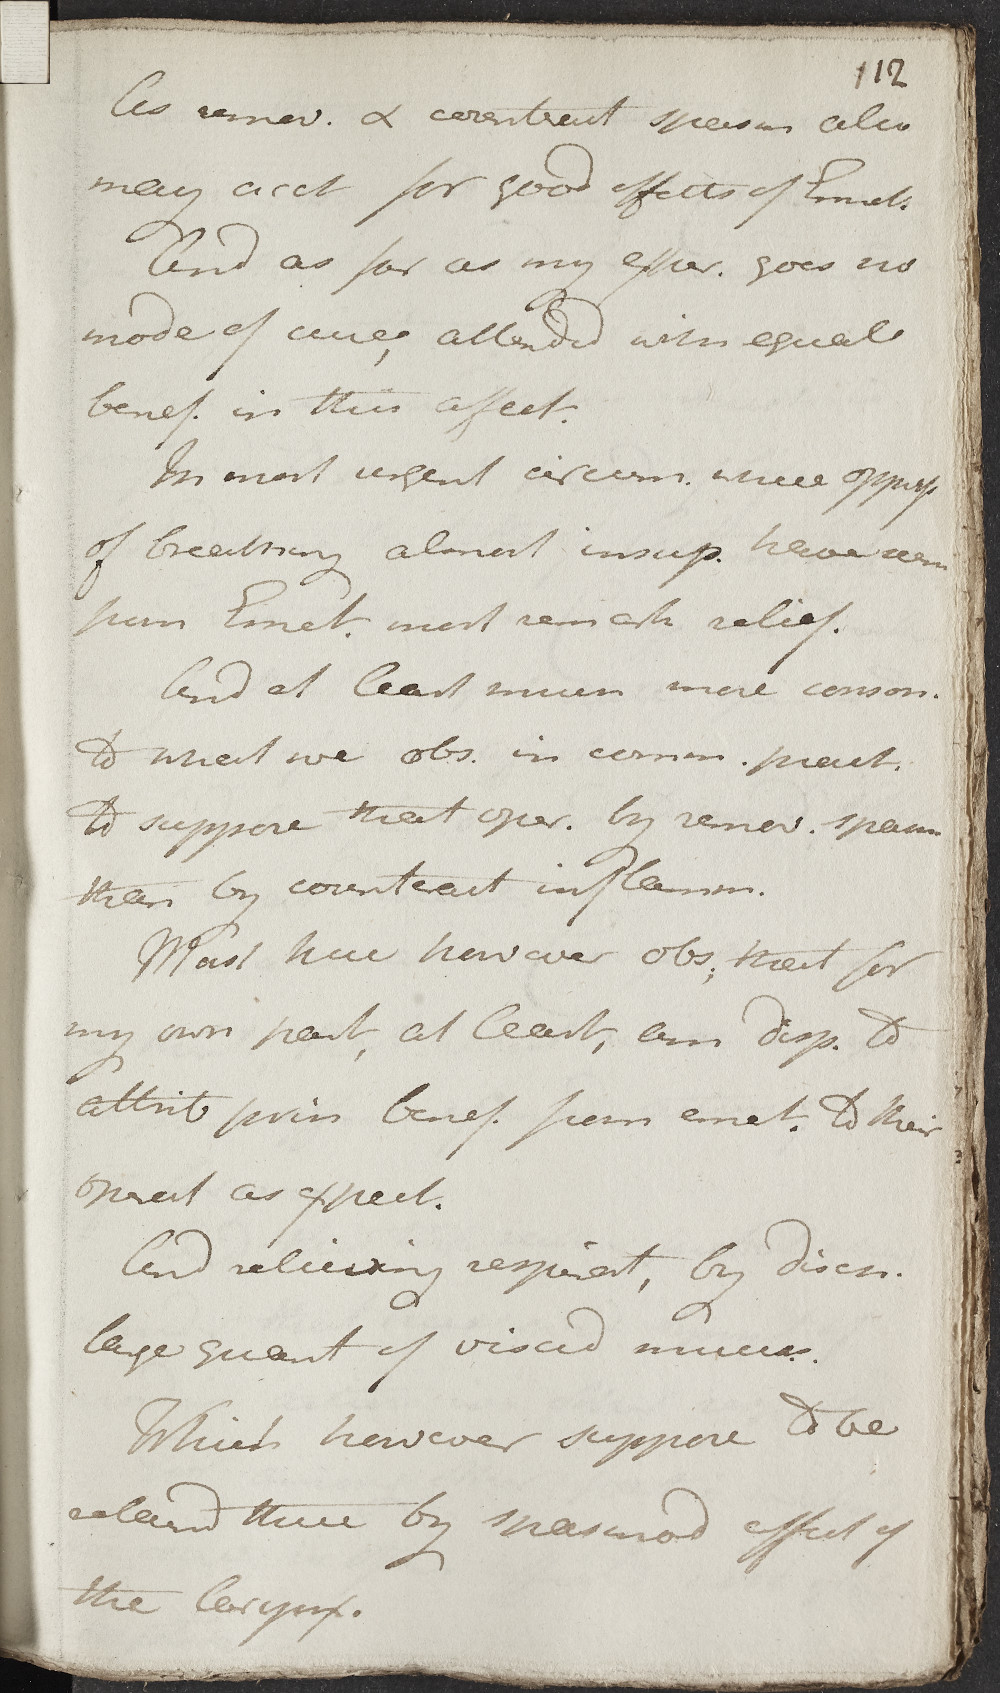 112
As remov. & counteract spasm also
may acct for good effects of Emet.
And as far as my exper. goes no
mode of cure, attended with equal
benef. in this affect.
In most urgent circum. where oppress
of breathing almost insup. have seen
from Emet. most remark relief.
And at least much more conson.
to what we obs. in comm. pract.
to suppose that oper. by remov. spasm
than by counteract inflamm.
Must here however obs; that for
my own part, at least, am disp. to
attrib prin benef. from emet. to their
operat as expect.
And relieving respirat, by disch.
large quant of viscid mucus.
Which however suppose to be
retaind there by spasmod affect of
the larynx.